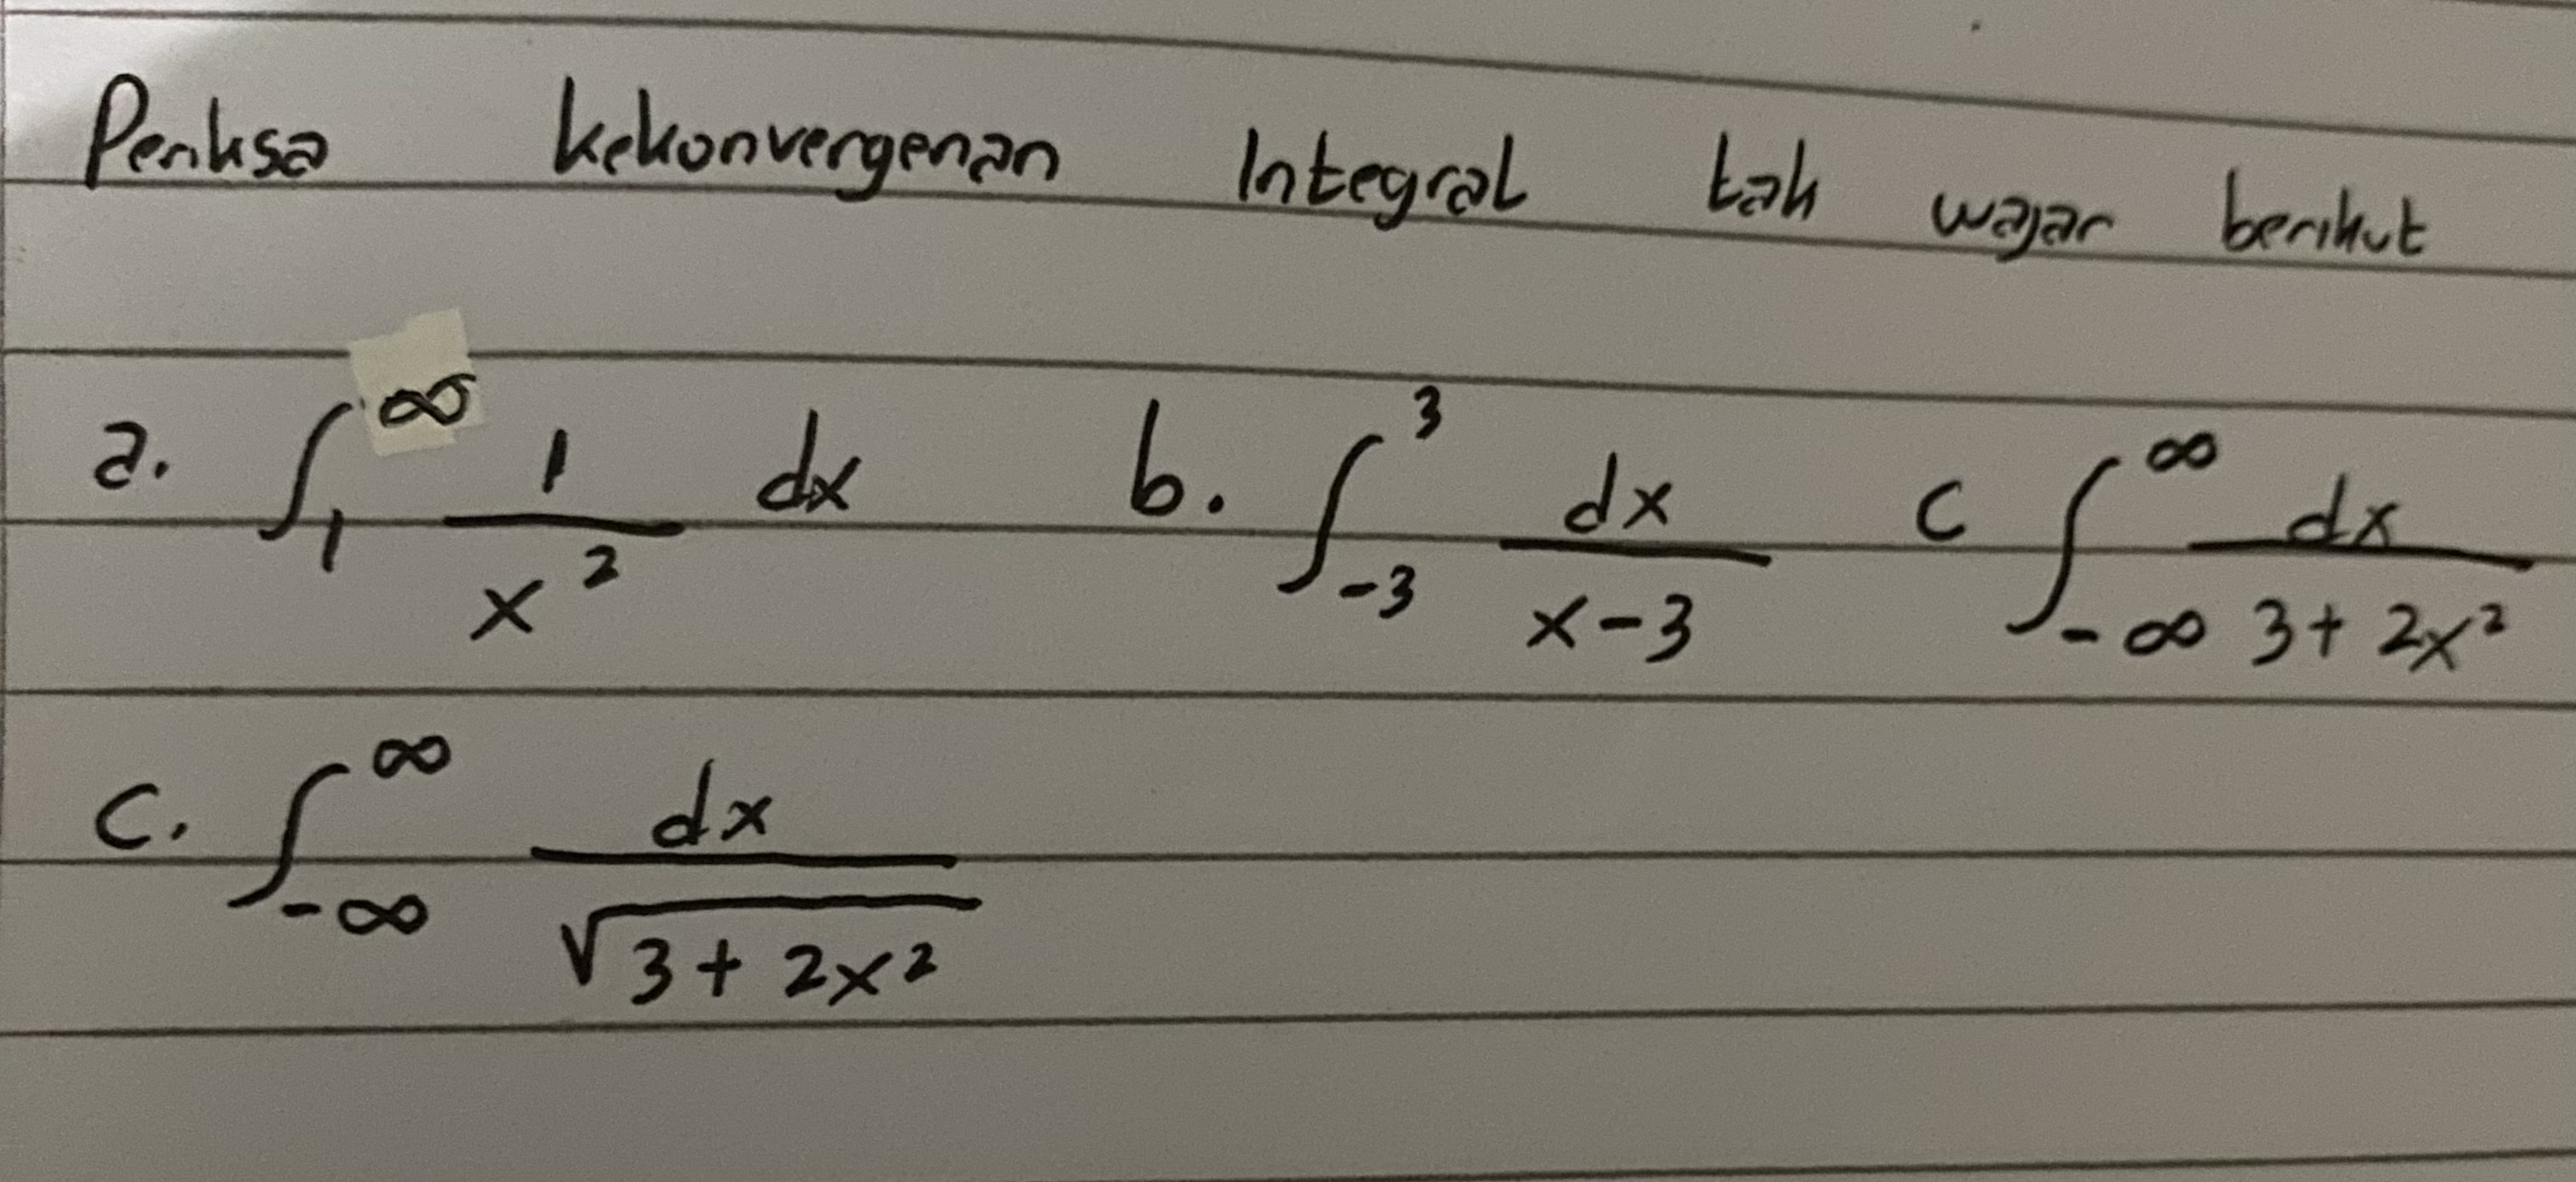 Periksa kekonvergenan Integral tak wajar berikut
a. ∫₁^∞ 1/x² dx b. ∫₋₃³ dx/(x-3) c ∫₋∞^∞ dx/(3+2x²)
c. ∫₋∞^∞ dx/√(3+2x²)